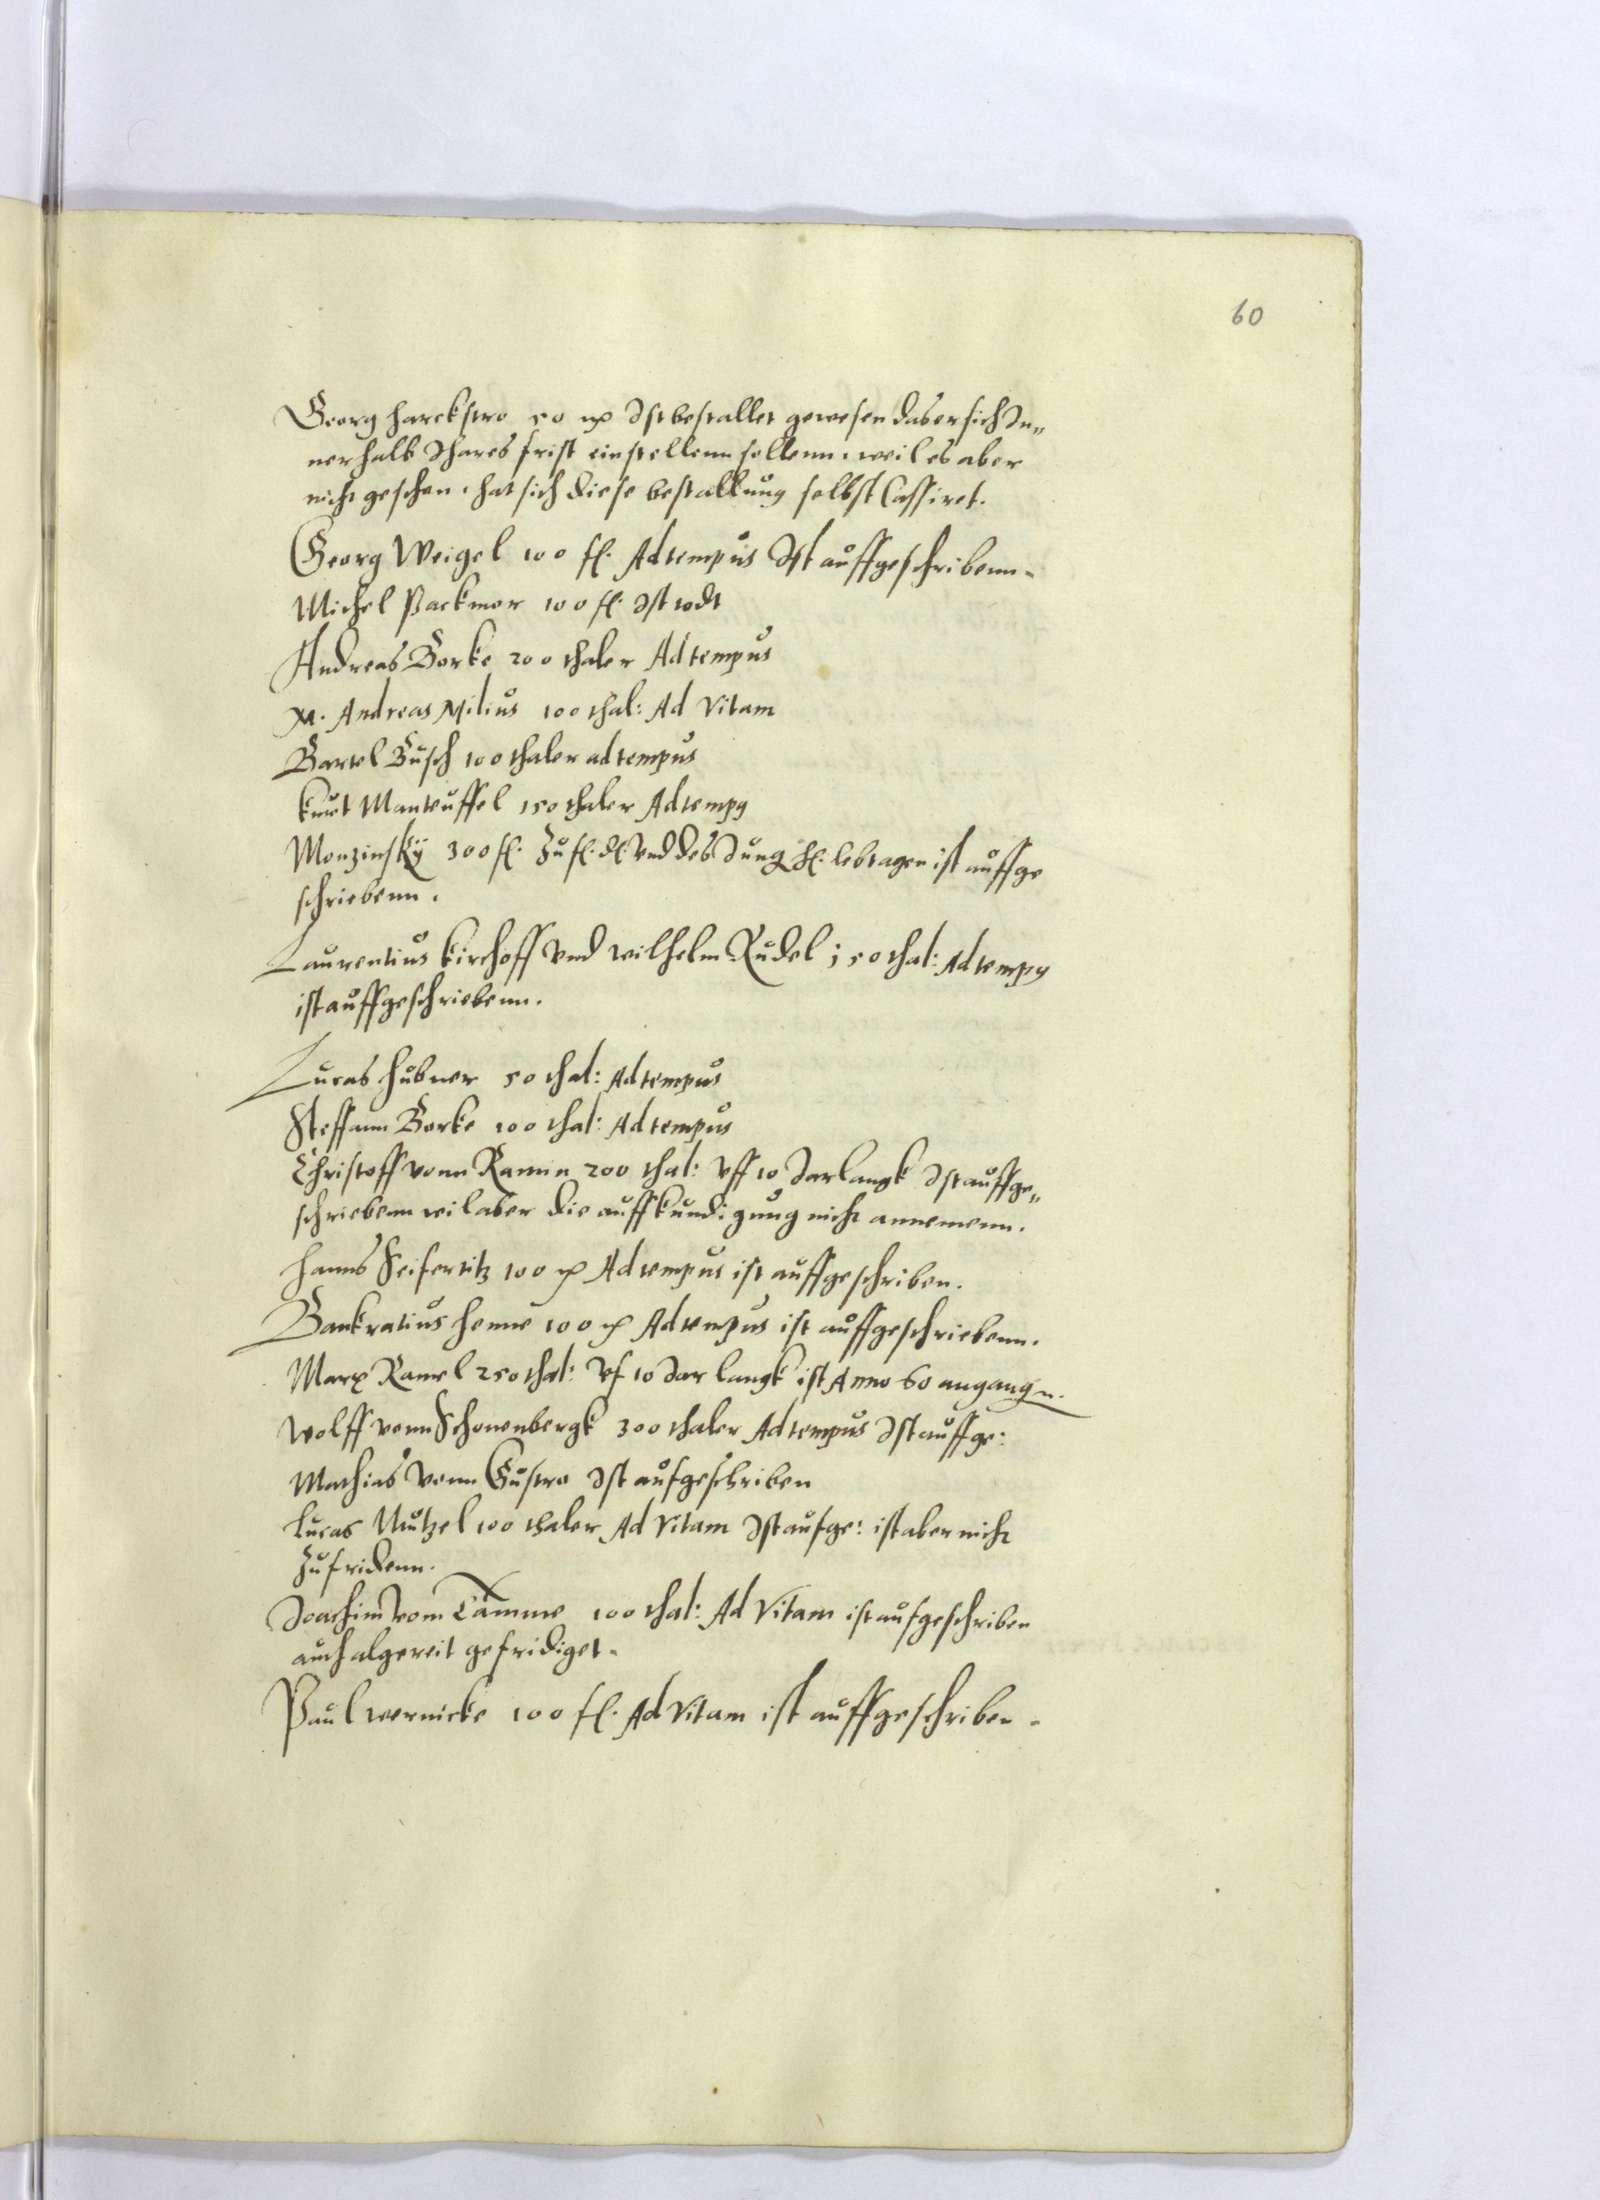 60
Georg harckstro 50 mk Ist bestallet gewesen das er sich In„
nerhalb Ihares frist einstellenn sollenn. weil es aber
nicht geschen. hat sich diese bestallung selbst Cassiret.
Georg Weigel 100 fl. Ad tempus Ist auffgeschribenn.
Michel Packmor 100 fl. Ist todt
Andreas Borke 200 thaler Ad tempus
M. Andreas Milius 100 thal: Ad Vitam
Bartel Busch 100 thaler ad tempus
kurt Manteuffel 150 thaler Ad tempus
Monzinsky 300 fl. Zu fl. dl. vnd des Jung hl. lebtagen ist auffge
schriebenn.
Laurentius kirchoff vnd wilhelm Rudel 150 thal: Ad tempus
ist auffgeschriebenn.
Lucas hubner 50 thal: Ad tempus
Steffann Borke 100 thal: Ad tempus
Christoff vonn Ramin 200 thal: vff 10 Jar langk Ist auffge„
schriebenn wil aber die auffkundigung nicht annemenn.
hanns Seifertitz 100 mk Ad tempus ist auffgeschriben.
Bankratius henne 100 mk Ad tempus ist auffgeschriebenn.
Marx Ramel 250 thal: vf 10 Jar langk ist Anno 60 angangn.
Wolff vonn Schonenbergk 300 thaler Ad tempus Ist auffge:
Mathias vonn Gustro Ist aufgeschriben
Lucas Nutzel 100 thaler Ad Vitam Ist aufge: ist aber nicht
Zufridenn.
Joachim vom Damme 100 thal: Ad Vitam ist aufgeschriben
auch algereit gefridiget.
Paul wernicke 100 fl. Ad Vitam ist auffgeschriben.